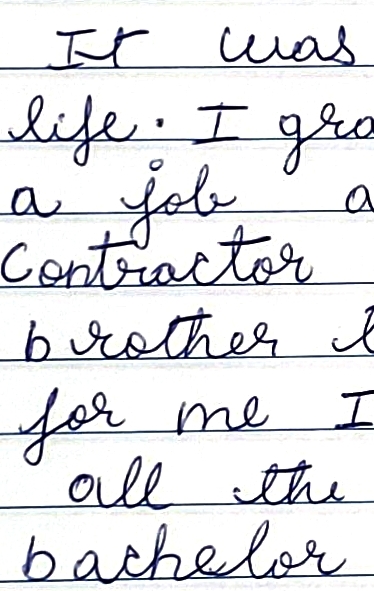 It was
life. I gra
a job a
Contractor
brother l
for me I
all the
bachelor